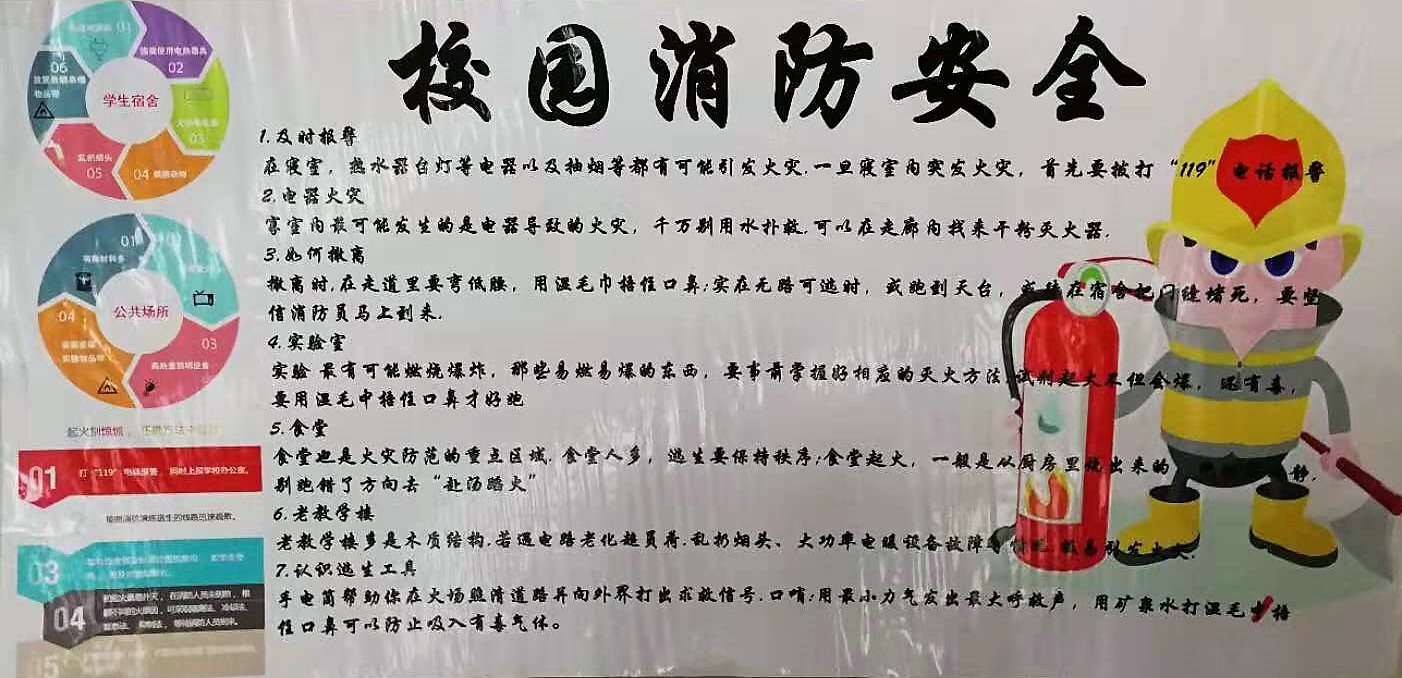 校园消防安全
学生宿舍
02
强度使用电热器具
03
04
05
乱扔烟头
06
公共场所
01
03
04
1.及时报警
在寝室，热水器台灯等电器以及抽烟等都有可能引发火灾.一旦寝室内突发火灾，首先要拔打“119”电话报警
2.电器火灾
寝室内最可能发生的是电器导致的火灾，千万别用水扑救.可以在走廊内找来干粉灭火器.
3.如何撤离
撤离时,在走道里要弯低腰，用湿毛巾捂住口鼻;实在无路可逃时，或跑到天台，或待在宿舍把门缝堵死，要坚
信消防员马上到来.
4.实验室
实验 最有可能燃烧爆炸，那些易燃易爆的东西，要事前掌握好相应的灭火方法.试剂起火不但会爆，还有毒，
要用湿毛巾捂住口鼻才好跑
5.食堂
食堂也是火灾防范的重点区域.食堂人多，逃生要保持秩序;食堂起火，一般是从厨房里烧出来的
静.
别跑错了方向去“赴汤蹈火”
6.老教学楼
老教学楼多是木质结构.若遇电路老化超负荷.乱扔烟头、大功率电暖设备故障等情况
引发火灾.
7.认识逃生工具
手电筒帮助你在火场照清道路并向外界打出求救信号.口哨:用最小力气发出最大呼救声，用矿泉水打湿毛巾捂
住口鼻可以防止吸入有毒气体。
起火别惊慌
01
打“119”电话报警 同时上报学校办公室。
按照消防演练逃生的线路迅速疏散。
03
04
05